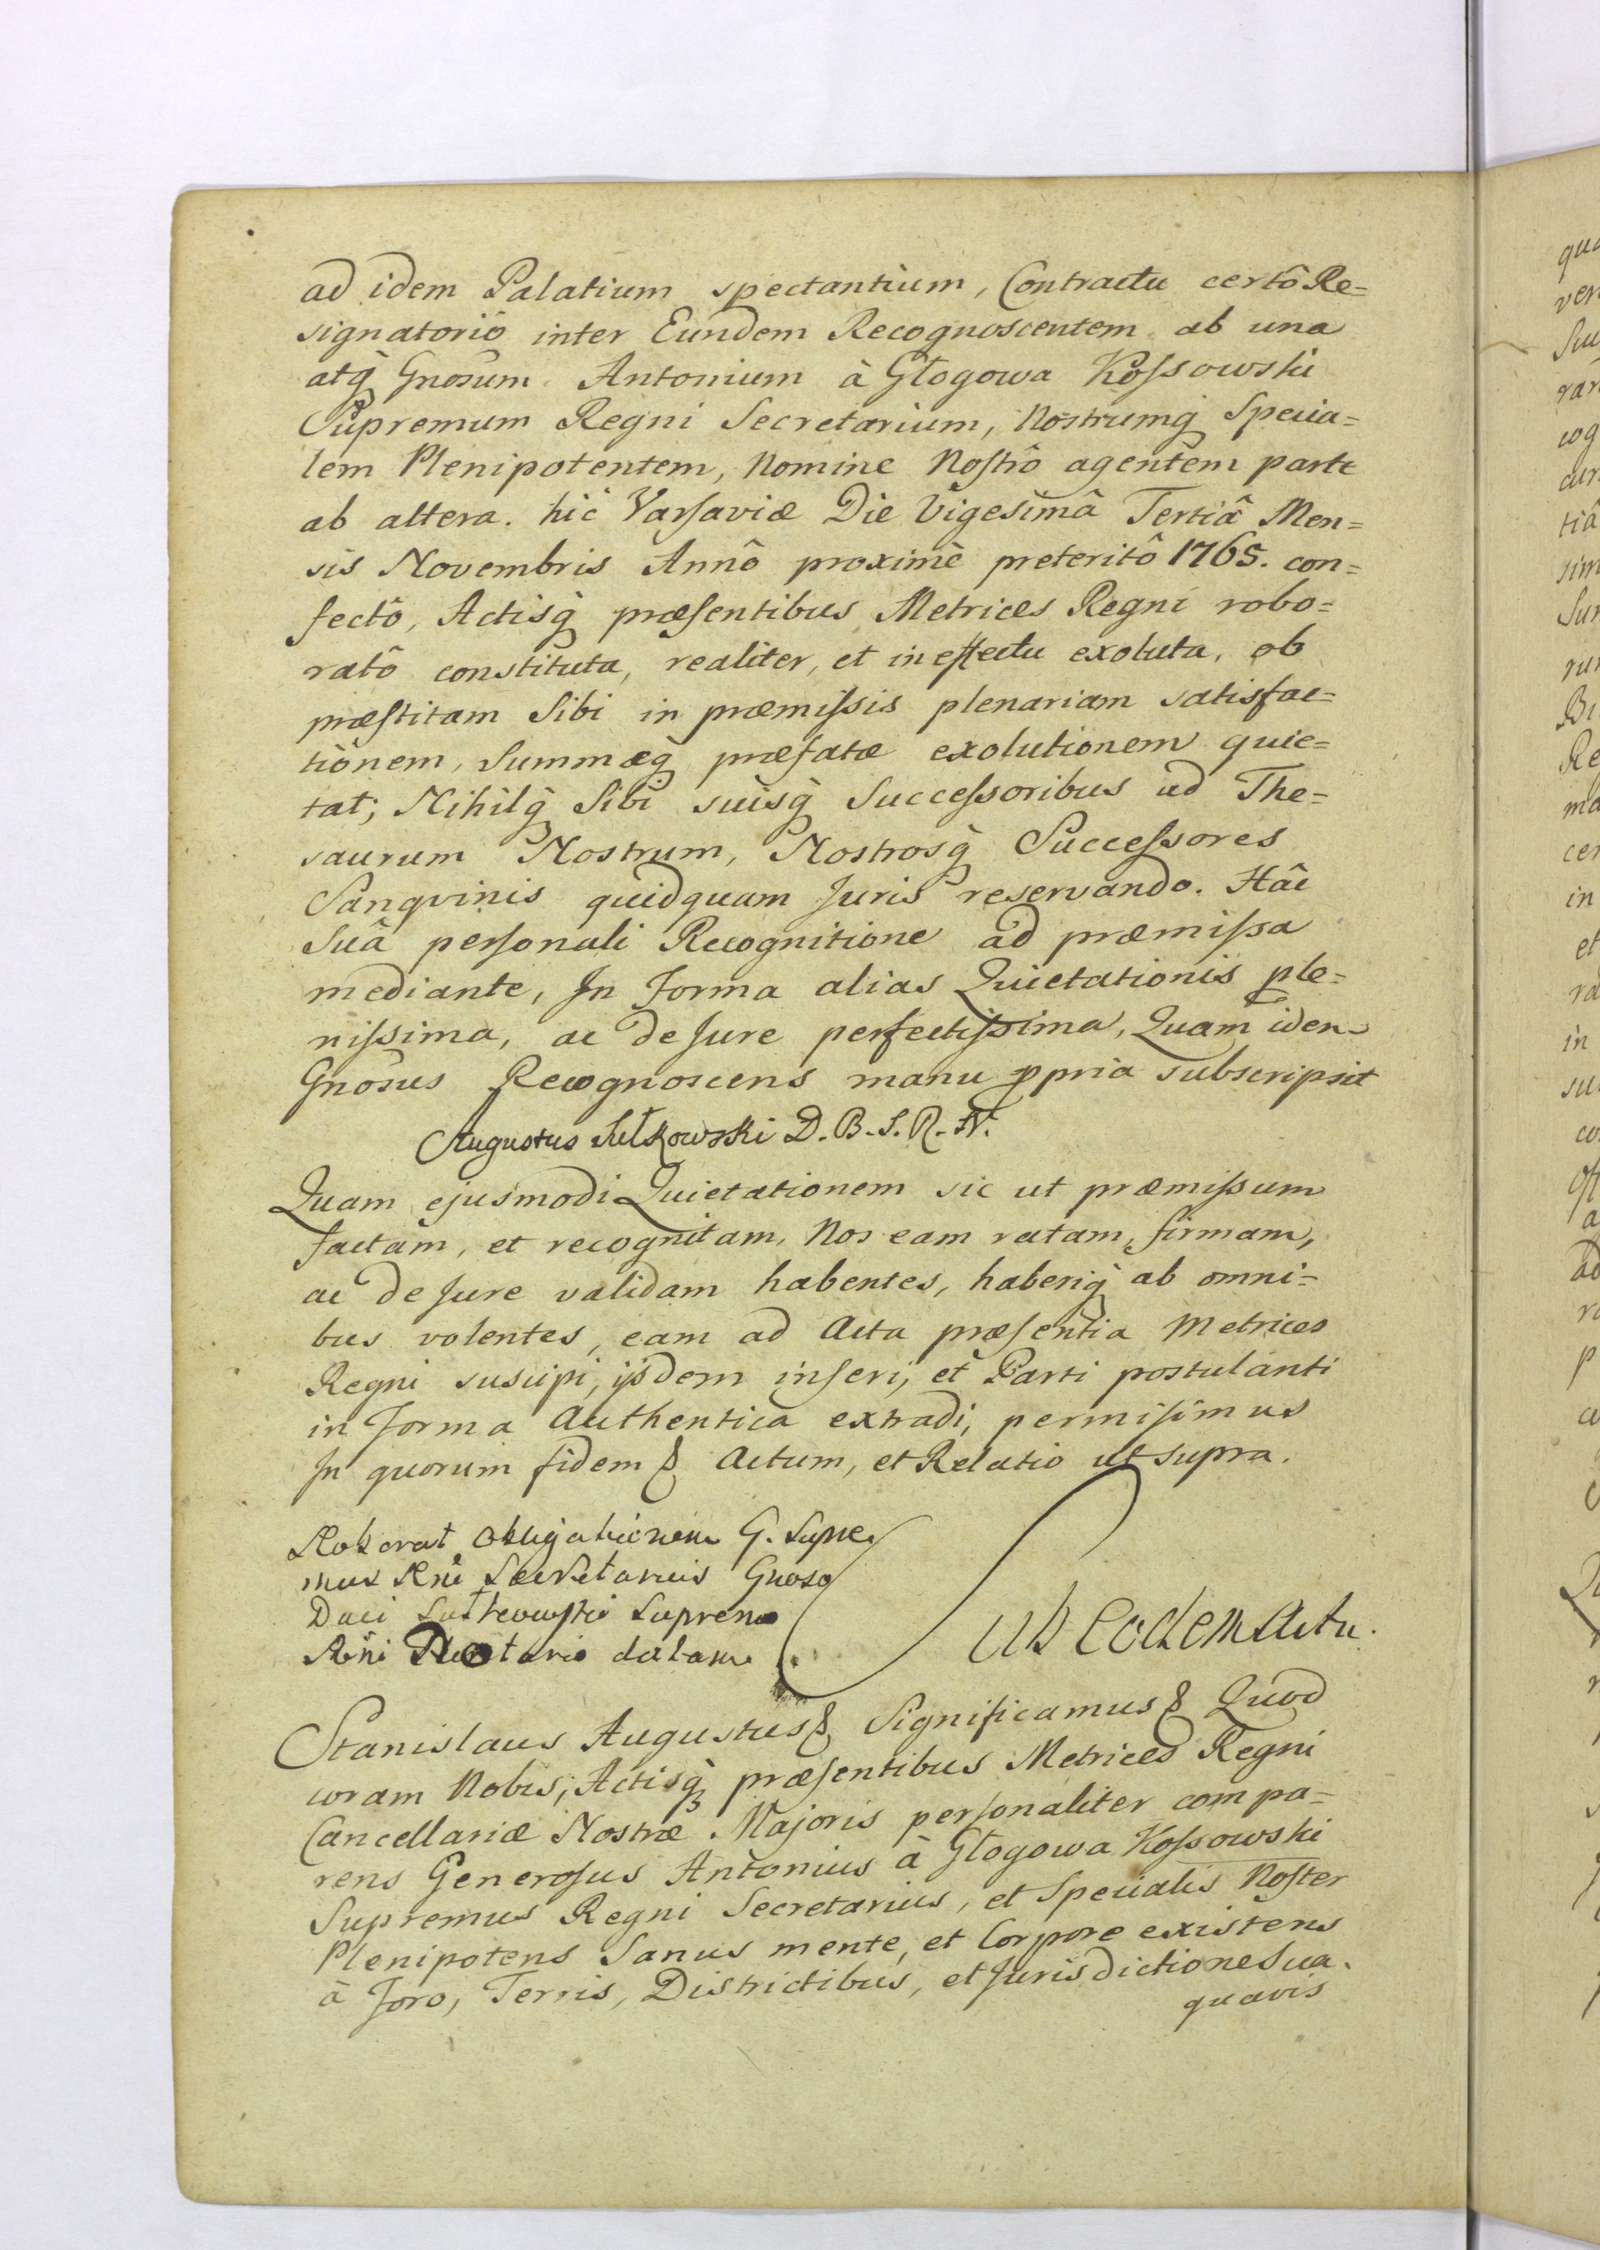 ad idem Palatium spectantium, Contractu certô Re=
signatoriô inter Eundem Recognoscentem ab una
atq̀ Gnosum Antonium à Głogowa Kossowski
Supremum Regni Secretarium, Nostrumq̀ Specia=
lem Plenipotentem, Nomine Nostrô agentem parte
ab altera. hic Varsaviæ Die Vigesimâ Tertiâ Men=
sis Novembris Annô proximè preteritô 1765. con=
fectô, Actisq̀ præsentibus Metrices Regni robo=
ratô constituta, realiter, et in effectu exoluta, ob
præstitam Sibi in præmissis plenariam satisfac=
tionem, Summæq̀ præfatæ exolutionem quie=
tat; Nihilq̀ Sibi suisq̀ Successoribus ad The=
saurum Nostrum, Nostrosq̀ Successores
Sanqvinis quidquam Juris reservando. Hâc
Suâ personali Recognitione ad præmissa
mediante, In Forma alias Quietationis ple=
nissima, ac de Jure perfectissima, Quam idem
Gnosus Recognoscens manu ppria subscripsit
Augustus Sułkowski D. B. S. R. N.
Quam ejusmodi Quietationem sic ut præmissum
factam, et recognitam, Nos eam ratam, firmam,
ac de Jure validam habentes, haberiq̀ ab omni=
bus volentes, eam ad Acta præsentia Metrices
Regni suscipi, ijsdem inseri, et Parti postulanti
in Forma Authentica extradi, permisimus
In quorum fidem & Actum, et Relatio ut supra.
Roborat Obligationem G. Supre
mus Rni Secretarius Gnoso
Duci Sułkowski Supremo
Rni Notario datam
Ub Eodem Actu.
Stanislaus Augustus & Significamus & Quod
coram Nobis, Actisq̀ præsentibus Metrices Regni
Cancellariæ Nostræ Majoris personaliter compa=
rens Generosus Antonius à Głogowa Kossowski
Supremus Regni Secretarius, et Specialis Noster
Plenipotens Sanus mente, et Corpore existens
à Foro, Terris, Districtibus, et Jurisdictione Sua
quavis